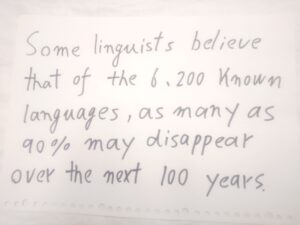 Some linguists believe
that of the 6.200 known
languages, as many as
90% may disappear
over the next 100 years.